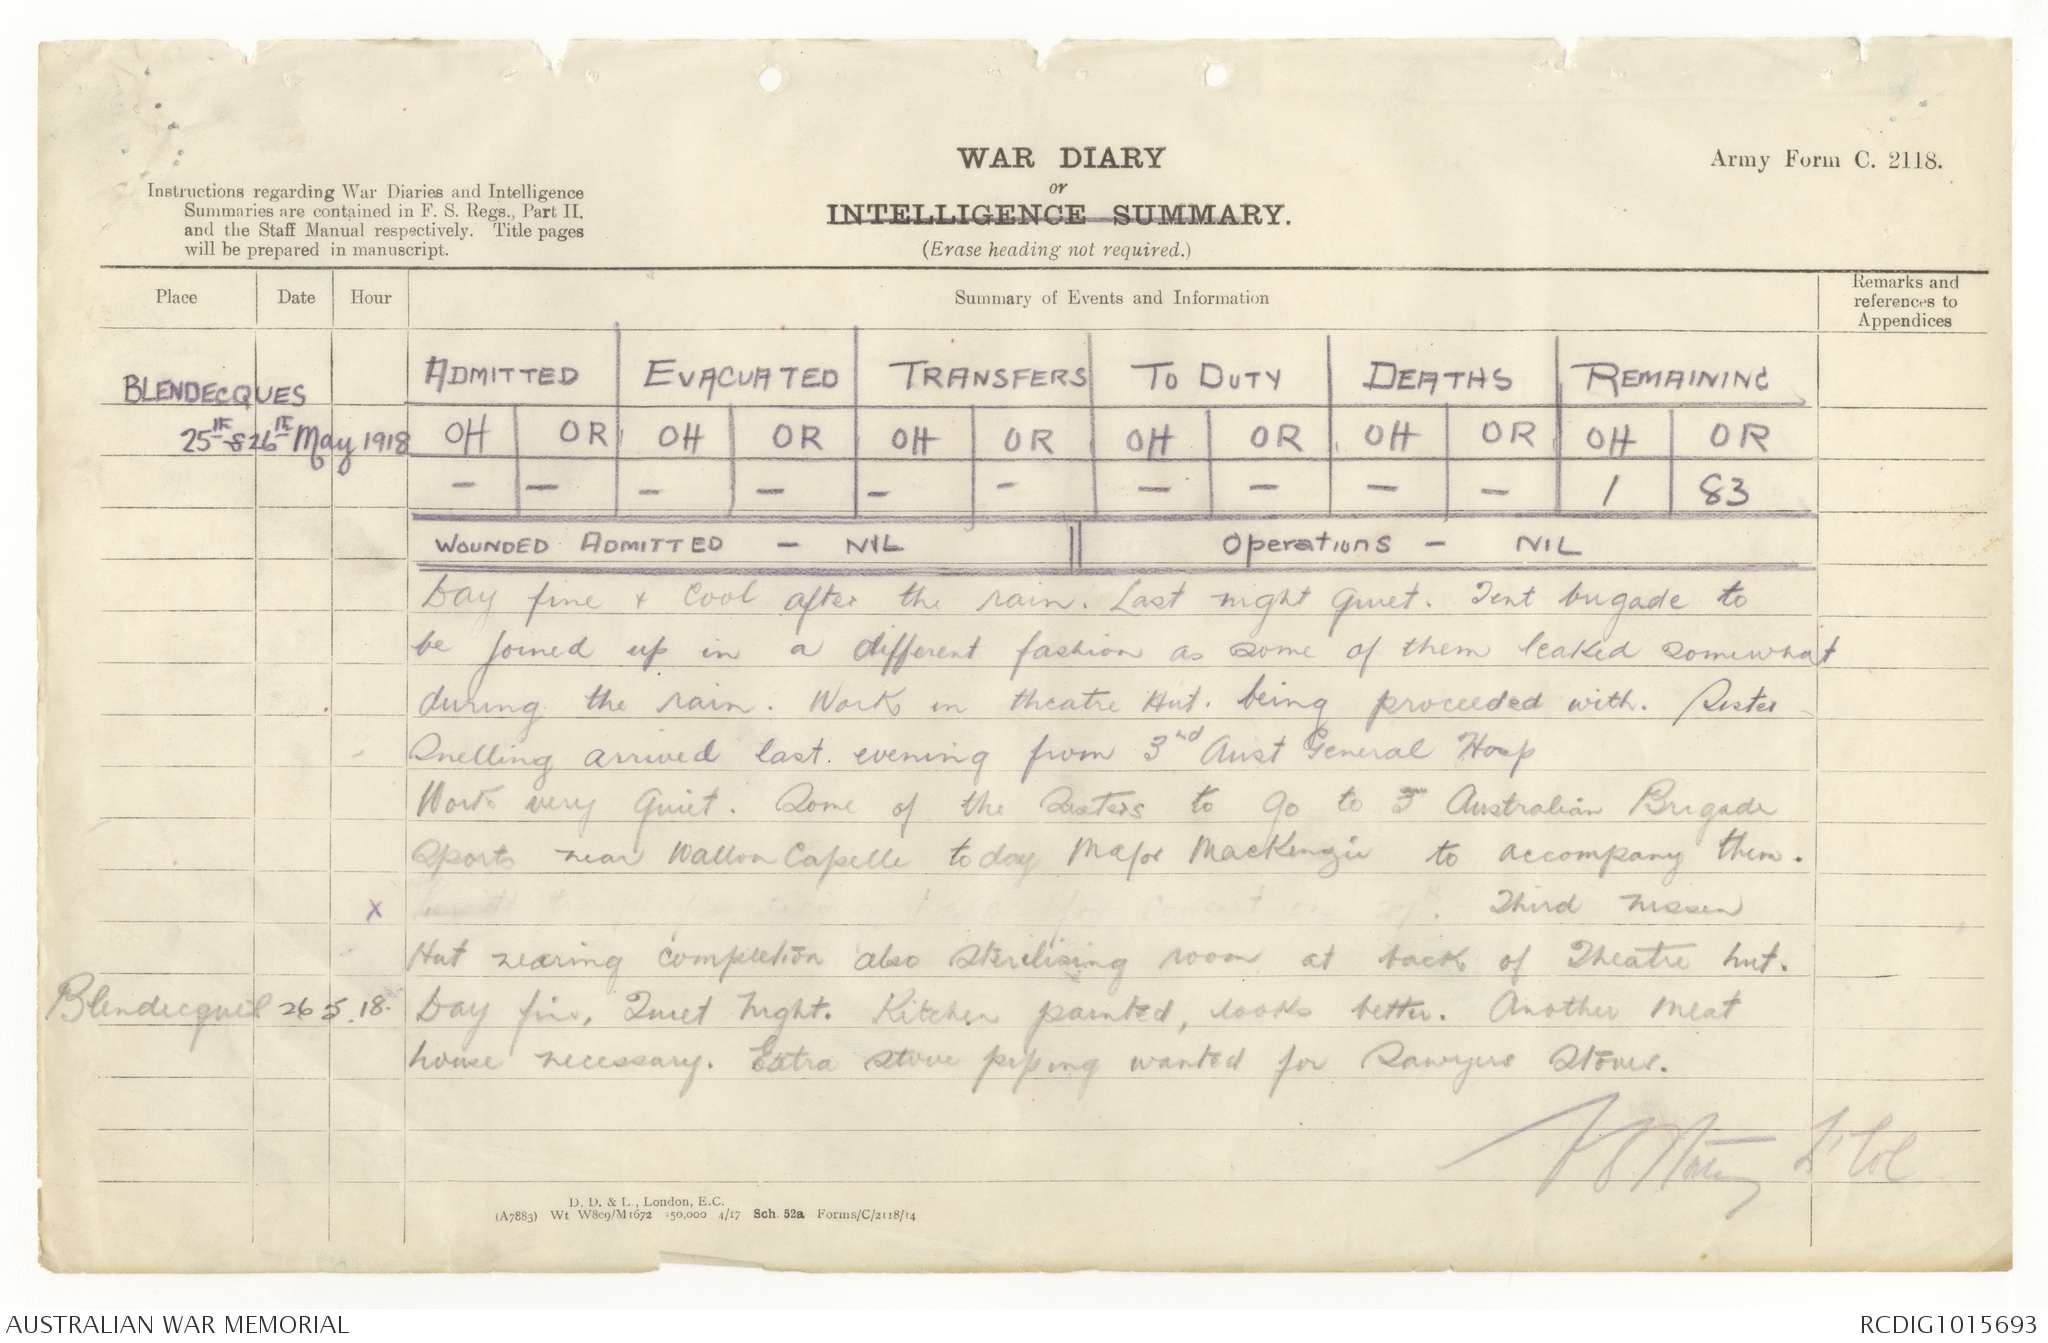 WAR DIARY
or
INTELLIGENCE SUMMARY.
(Erase heading not required.)
Army Form C. 2118.
Instructions regarding War Diaries and Intelligence
Summaries are contained in F. S. Regs., Part II,
and the Staff Manual respectively. Title pages
will be prepared in manuscript.
Place Date Hour Summary of Events and Information Remarks and
references to
Appendices
ADMITTED EVACUATED TRANSFERS TO DUTY DEATHS REMAINING
BLENDECQUES
25th & 26th May 1918 OH OR OH OR OH OR OH OR OH OR OH OR
- - - - - - - - - - 1 83
WOUNDED ADMITTED - NIL Operations - NIL
Day fine + cool after the rain. Last night quiet. Tent brigade to
be joined up in a different fashion as some of them leaked somewhat
during the rain. Work in theatre Hut. being proceeded with. Sister
Snelling arrived last evening from 3rd Aust General Hosp
Work very quiet. Some of the Sisters to go to 3rd Australian Brigade
Sports near Wallon Capelle today Major MacKenzie to accompany them.
X for concert on Third nissen
Hut nearing completion also sterilising room at back of Theatre hut.
Blendecques 26 5 .18. Day fine, Quiet night. Kitchen painted, looks better. Another meat
house necessary. Extra stove piping wanted for Sawyers Stoves.
Lt Col
D. D. & L., London, E.C.
(A7883) Wt W809/M1672 350,000 4/17 Sch. 52a Forms/C/2118/14
AUSTRALIAN WAR MEMORIAL RCDIG1015693